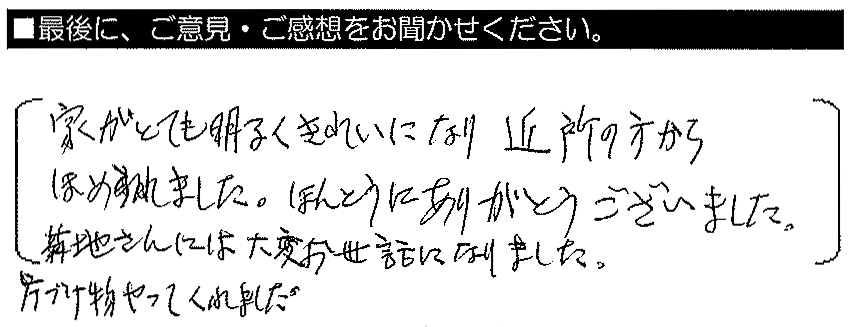 ■最後に、ご意見・ご感想をお聞かせください。
家がとても明るくきれいになり 近所の方から
ほめられました。ほんとうにありがとうございました。
菊地さんには大変お世話になりました。
片づけ物やってくれました。